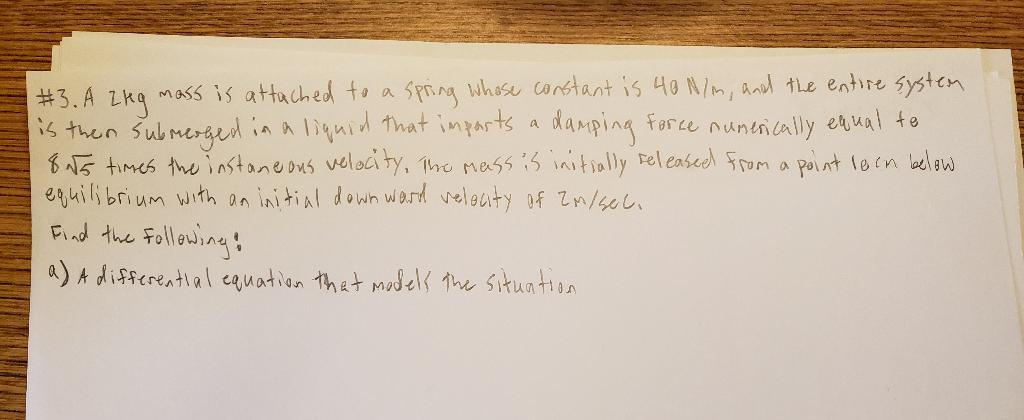 #3. A 2kg mass is attached to a spring whose constant is 40 N/m, and the entire system
is then submerged in a liquid that imparts a damping force numerically equal to
8√5 times the instaneous velocity. The mass is initially released from a point 10cm below
equilibrium with an initial downward velocity of 2m/sec.
Find the following:
a) A differential equation that models the situation